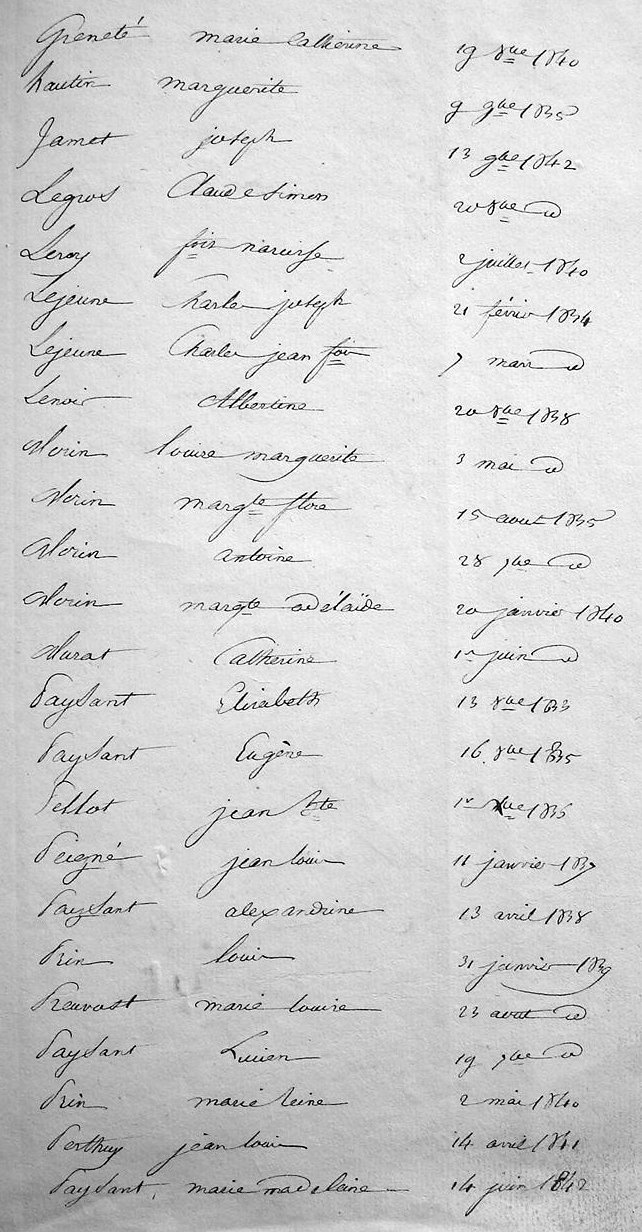 Greneté marie Catherine 19 8bre 1840
hautin marguerite 9 9bre 1835
Jamet joseph 13 9bre 1842
Legros Claude simon 20 8bre d
Leroy fois narcisse 2 juillet 1840
Lejeune Charles joseph 21 février 1834
Lejeune Charles jean fois 7 mars d
Lenoir Albertine 20 8bre 1838
Morin louise marguerite 3 mai d
Morin margte flore 15 aout 1835
Morin antoine 28 7bre d
Morin margte adélaïde 20 janvier 1840
Murat Catherine 1er juin d
Paysant Elisabeth 13 8bre 1833
Paysant Eugène 16 8bre 1835
Pellot jean bte 1er 1836
Peigné jean louis 11 janvier 1837
Paysant alexandrine 13 avril 1838
Prin louis 31 janvier 1839
Prevost marie louise 23 aout d
Paysant Lucien 19 7bre d
Prin marie reine 2 mai 1840
Perthuy jean louis 14 avril 1841
Paysant, marie madelaine 14 juin 1842